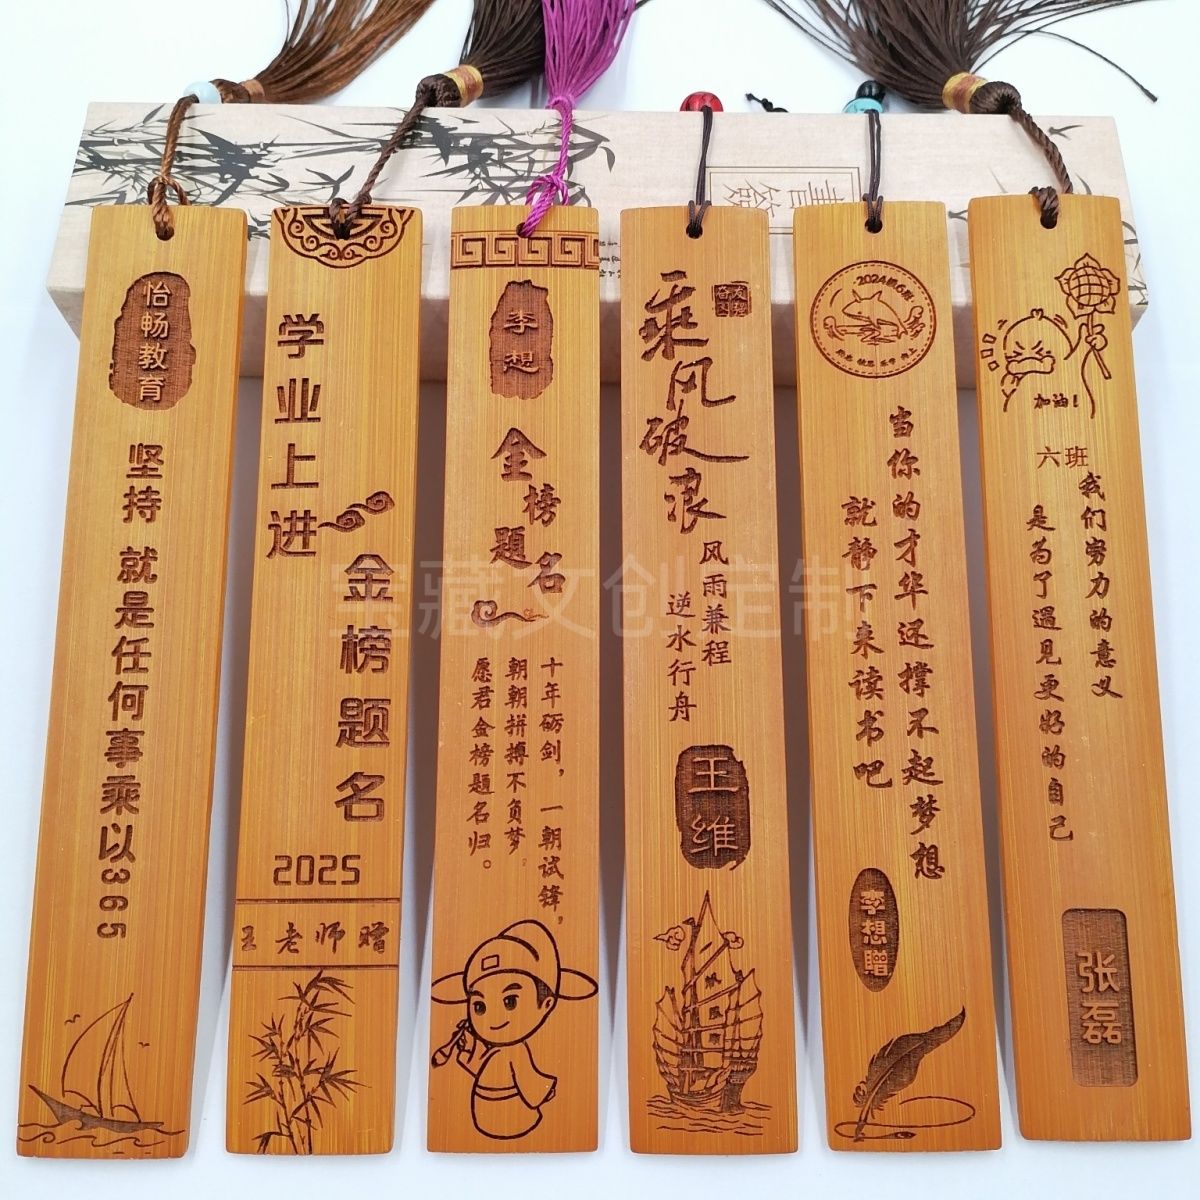 書签
怡畅教育
坚持 就是任何事乘以365
学业上进
金榜题名
2025
王老师赠
李想
金榜
題名
十年砺剑，一朝试锋，
朝朝拼搏不负梦。
愿君金榜题名归。
乘风破浪
风雨兼程
逆水行舟
王维
2024级6班
当你的才华还撑不起梦想
就静下来读书吧
李想赠
加油！
六班
我们努力的意义
是为了遇见更好的自己
张磊
宝藏文创定制